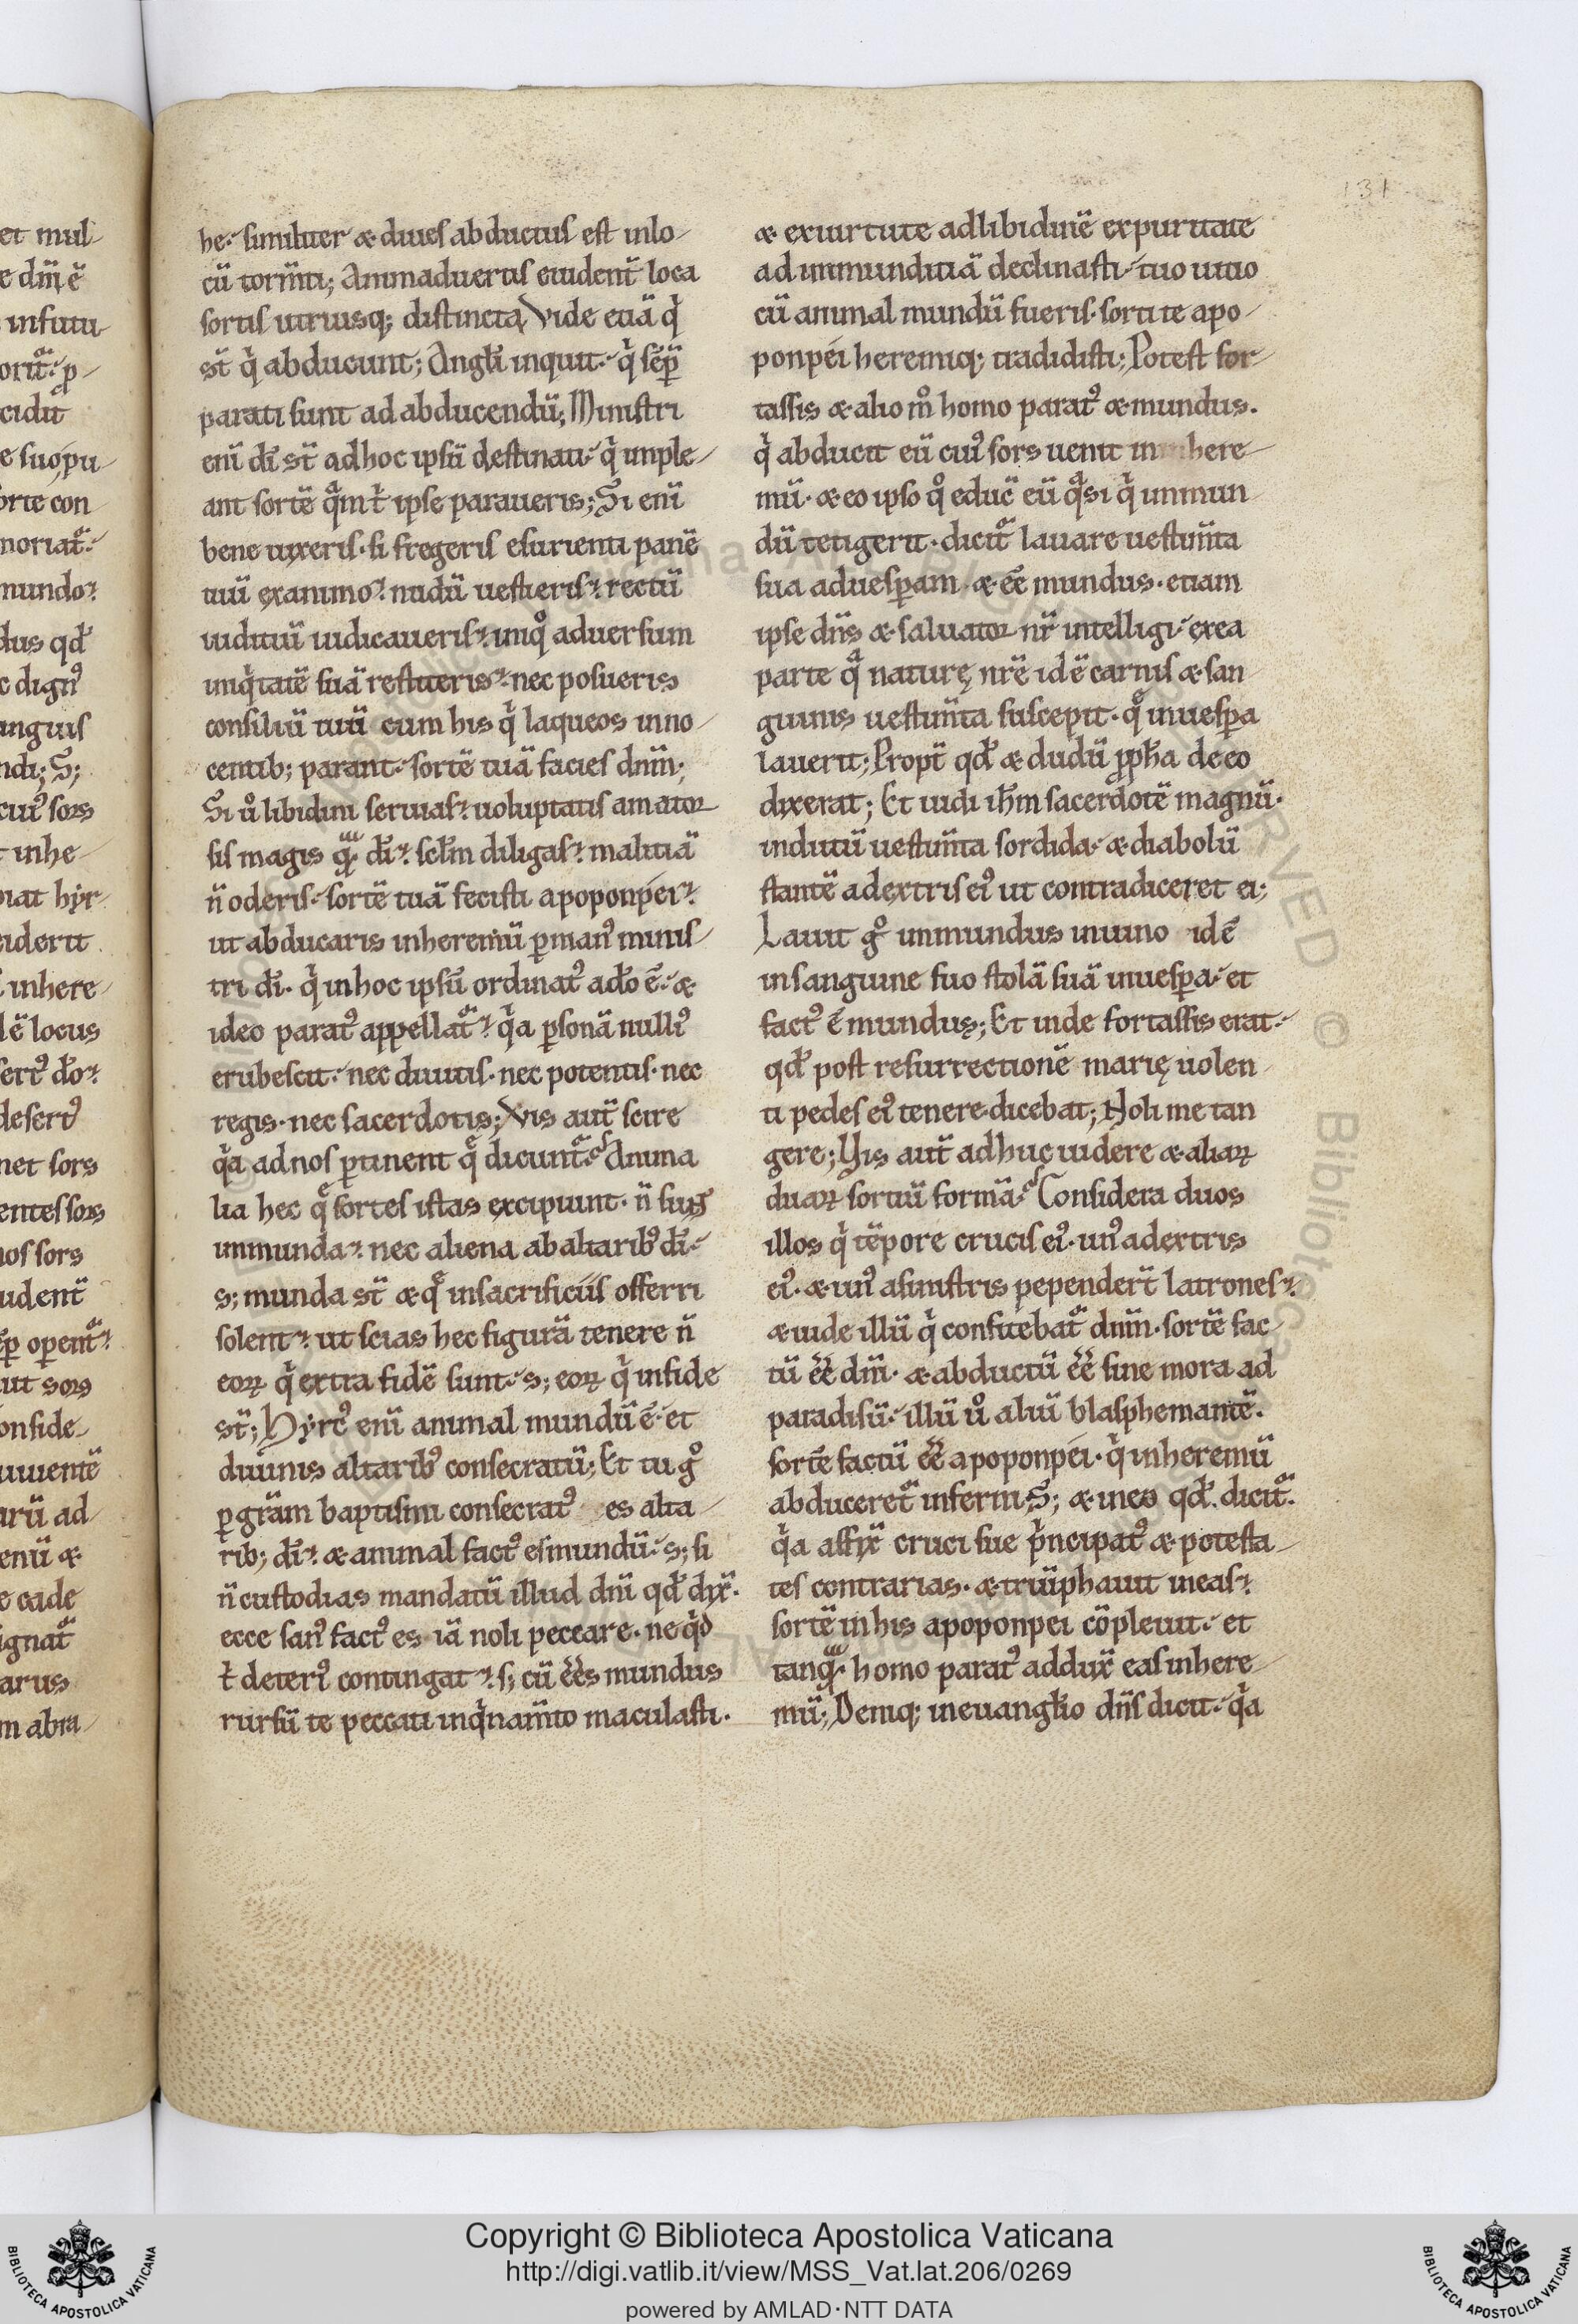 et mul-
e dm̄ ē
infutu-
orit᷑ p-
cidit
e suo pu-
orte con
moriat᷑
mundo
dus qd̄
c dign᷒
anguis
ndi; S;
cui᷒ sors
t inhe-
piat hyr-
eiderit
inhere-
lē locus
sert᷒ do
desert᷒
net sors
entes sors
nos sors
udent̄
sēp oꝑent᷑
ut sors
onside-
uiuentē
arū ad-
enū æ
e cade
ignat᷑
arus
m abra-
he. similiter æ diues abductus est inlo-
cū torm̄ti; Animaduertis euident̄ loca
sortis utriusq; distincta, Vide etiā qͥ
st̄ qͥ abducunt; Angl̄i inquit. qͥ sēꝑ
parati sunt ad abducendū; Ministri
enī dī st̄ adhoc ipsū destinati. qͥ imple-
ant sortē qͣm t̄ ipse paraueris; Si enī
bene uixeris. si fregeris esurienti panē
tuū exanimo. nudū uestieris. rectū
iuditiū iudicaueris. iniqͦ aduersum
iniqͥtatē suā restiteris. nec posueris
consiliū tuū cum his qͥ laqueos inno-
centib; parant. sortē tuā facies dnm̄;
Si uͦ libidini seruias. uoluptatis amator
sis magis qͣ̄ dī. scl̄m diligas. malitiā
n̄ oderis. sortē tuā fecisti apoponpei.
ut abducaris inheremū ꝑ man᷒ minis-
tri dī. qͥ inhoc ipsū ordinat᷒ ado ē. æ
ideo parat᷒ appellat᷑. qͥa ꝑsonā nulli᷒
erubescit. nec diuitis. nec potentis. nec
regis. nec sacerdotis; Vis aut̄ scire
qͥa ad nos ꝑtinent qͤ dicunt᷑. Anima
lia hec qͤ sortes istas excipiunt. n̄ suɳ
inmunda. nec aliena ab altarib᷒ dī.
s; munda st̄ æ qͤ insacrificiis offerri
solent. ut scias hec figurā tenere n̄
eoꝝ qͥ extra fidē sunt. s; eoꝝ qͥ infide
st̄; Hyrc᷒ enī animal mundū ē. et
diuinis altarib᷒ consecratū; Et tu gͦ
ꝑ grām baptismi consecrat᷒ es alta-
rib; dī. æ animal fact᷒ es mundū. s; si
n̄ custodias mandatū illud dnī qd̄ dix̄.
ecce san᷒ fact᷒ es iā noli peccare. ne qͥd
t̄ deteri᷒ contingat. s; cū ēēs mundus
rursū te peccati inqͥnam̄to maculasti.
æ exuirtute adlibidinē expuritate
ad inmunditiā declinasti. tuo uitio
cū animal mundū fueris. sorti te apo-
ponpei heremiq; tradidisti; Potest for-
tassis æ alio mͦ homo parat᷒ æ mundus.
qͥ abducit eū cui᷒ sors uenit in here-
mū. æ eo ipso qͦ educ̄ eū qͣsi qͥ inmun
dū tetigerit. dicit᷑ lauare uestim̄ta
sua aduesꝑam. æ eē mundus. etiam
ipse dn̄s æ saluator nr̄ intelligi. exea
parte qͣ naturę nr̄ē idē carnis æ san
guinis uestim̄ta suscepit. qͤ inuesꝑa
lauerit; Propt̄ qd̄ æ dudū ꝓph̄a de eo
dixerat; Et uidi ih̄m sacerdotē magnū.
indutū uestim̄ta sordida. æ diabolū
stantē adextris ei᷒ ut contradiceret ei;
Lauit gͦ inmundus inuino idē
insanguine suo stolā suā inuesꝑa. et
fact᷒ ē mundus; Et inde fortassis erat.
qd̄ post resurrectionē marię uolen
ti pedes ei᷒ tenere. dicebat; Noli me tan
gere; Vis aut̄ adhuc uidere æ aliaꝝ
duaꝝ sortiū formā. Considera duos
illos qͥ tēpore crucis ei᷒. un᷒ adextris
ei᷒. æ un᷒ asinistris pependert̄ latrones.
æ uide illū qͥ confitebat᷑ dnm̄. sortē fac-
tū ēē dnī. æ abductū ēē sine mora ad
paradisū. illū uͦ aliū blasphemantē.
sortē factū ēē apoponpei. qͥ inheremū
abduceret᷑ inferni. S; æ in eo qd̄ dicit᷑.
qͥa affix̄ cruci sue pͥncipat᷒ æ potesta-
tes contrarias. æ triūphauit in eas.
sortē inhis apoponpei cōpleuit. et
tanqͣ̄ homo parat᷒ addux̄ eas inhere-
mū; Deniq; ineuangl̄io dn̄s dicit. qͥa
131
Copyright © Biblioteca Apostolica Vaticana
http://digi.vatlib.it/view/MSS_Vat.lat.206/0269
powered by AMLAD·NTT DATA
BIBLIOTECA APOSTOLICA VATICANA
BIBLIOTECA APOSTOLICA VATICANA